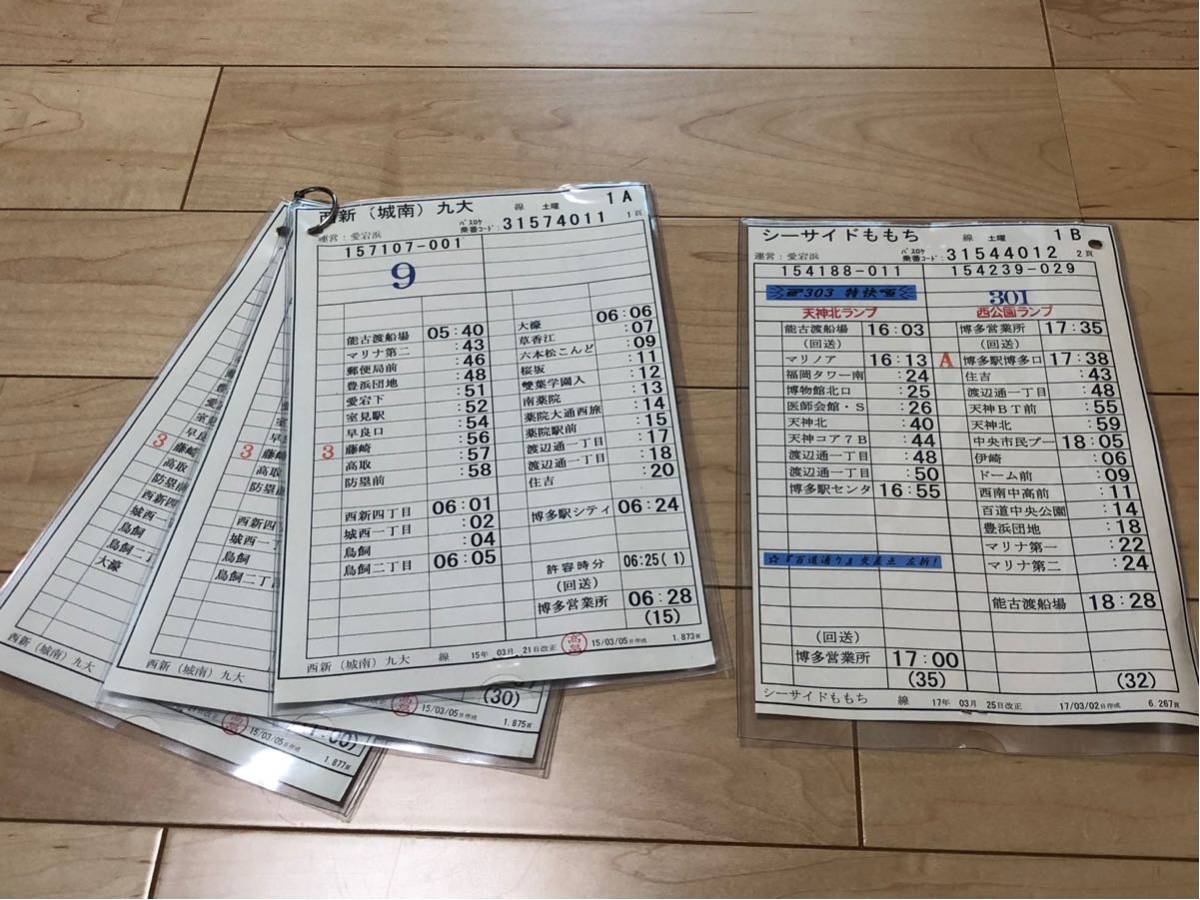 西新（城南）九大 線 土曜 1A
運営：愛宕浜 バスロケ乗番コード：31574011 1頁
157107-001
9
能古渡船場 05:40
マリナ第二 :43
郵便局前 :46
豊浜団地 :48
愛宕下 :51
室見駅 :52
早良口 :54
3 藤崎 :56
高取 :57
防塁前 :58
西新四丁目 06:01
城西一丁目 :02
鳥飼 :04
鳥飼二丁目 06:05
大濠 06:06
草香江 :07
六本松こんど :09
桜坂 :11
雙葉学園入 :12
南薬院 :13
薬院大通西旅 :14
薬院駅前 :15
渡辺通一丁目 :17
渡辺通一丁目 :18
住吉 :20
博多駅シティ 06:24
許容時分 06:25(1)
（回送）
博多営業所 06:28
(15)
西新（城南）九大 線 15年 03月 21日改正 高畠 15/03/05日作成 1.873頁
3 藤崎
高取
防塁前
西新四
城西一
鳥飼
鳥飼二丁
西新（城南）九大
(30)
15/03/05日作成 1.875頁
3 藤崎
高取
防塁
西新四
城西一
鳥飼
鳥飼二
大濠
西新（城南）九大
15/03/05日作成 1.877頁
シーサイドももち 線 土曜 1B
運営：愛宕浜 バスロケ乗番コード：31544012 2頁
154188-011
303 特快
天神北ランプ
能古渡船場 16:03
（回送）
マリノア 16:13
福岡タワー南 :24
博物館北口 :25
医師会館・S :26
天神北 :40
天神コア7B :44
渡辺通一丁目 :48
渡辺通一丁目 :50
博多駅センタ 16:55
☆『百道通り』交差点 左折！
（回送）
博多営業所 17:00
(35)
154239-029
301
西公園ランプ
博多営業所 17:35
（回送）
A 博多駅博多口 17:38
住吉 :43
渡辺通一丁目 :48
天神BT前 :55
天神北 :59
中央市民プー 18:05
伊崎 :06
ドーム前 :09
西南中高前 :11
百道中央公園 :14
豊浜団地 :18
マリナ第一 :22
マリナ第二 :24
能古渡船場 18:28
(32)
シーサイドももち 線 17年 03月 25日改正 17/03/02日作成 6.267頁